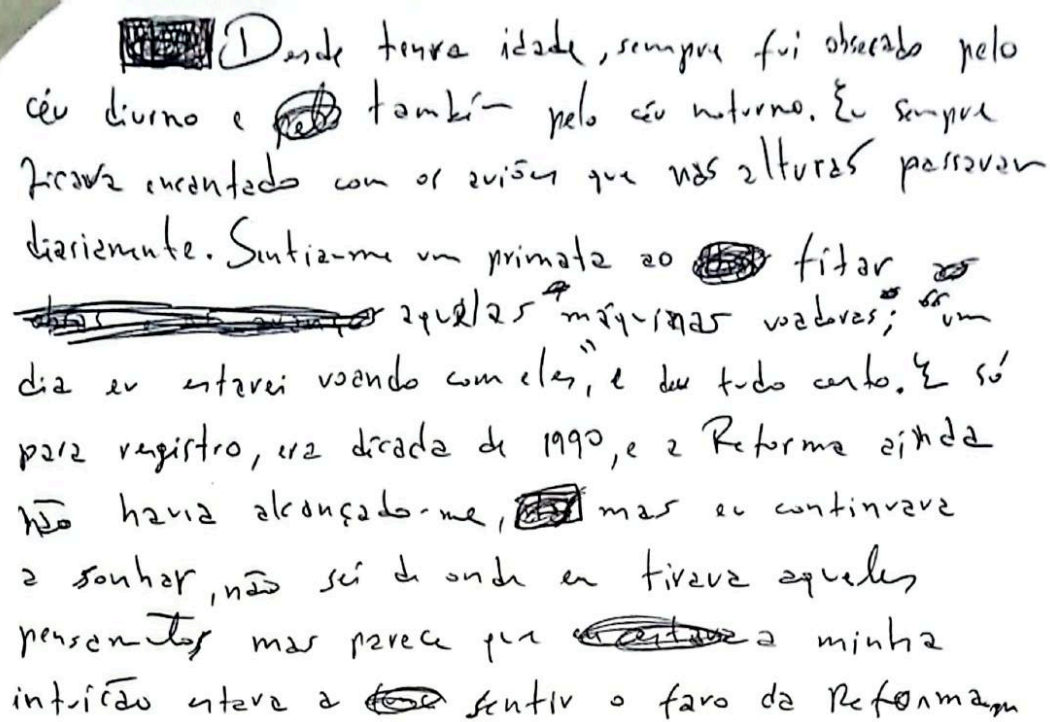 Desde tenra idade, sempre fui obsecado pelo
céu diurno e também pelo céu noturno. Eu sempre
ficava encantado com os aviões que nas alturas passavam
diariamente. Sentia-me um primata ao fitar
aquelas máquinas voadoras; "um
dia eu estarei voando com eles", e deu tudo certo. E só
para registro, era década de 1990, e a Reforma ainda
não havia alcançado-me, mas eu continuava
a sonhar, não sei de onde eu tirava aqueles
pensamentos mas parece que a minha
intuição estava a sentir o faro da Reforma